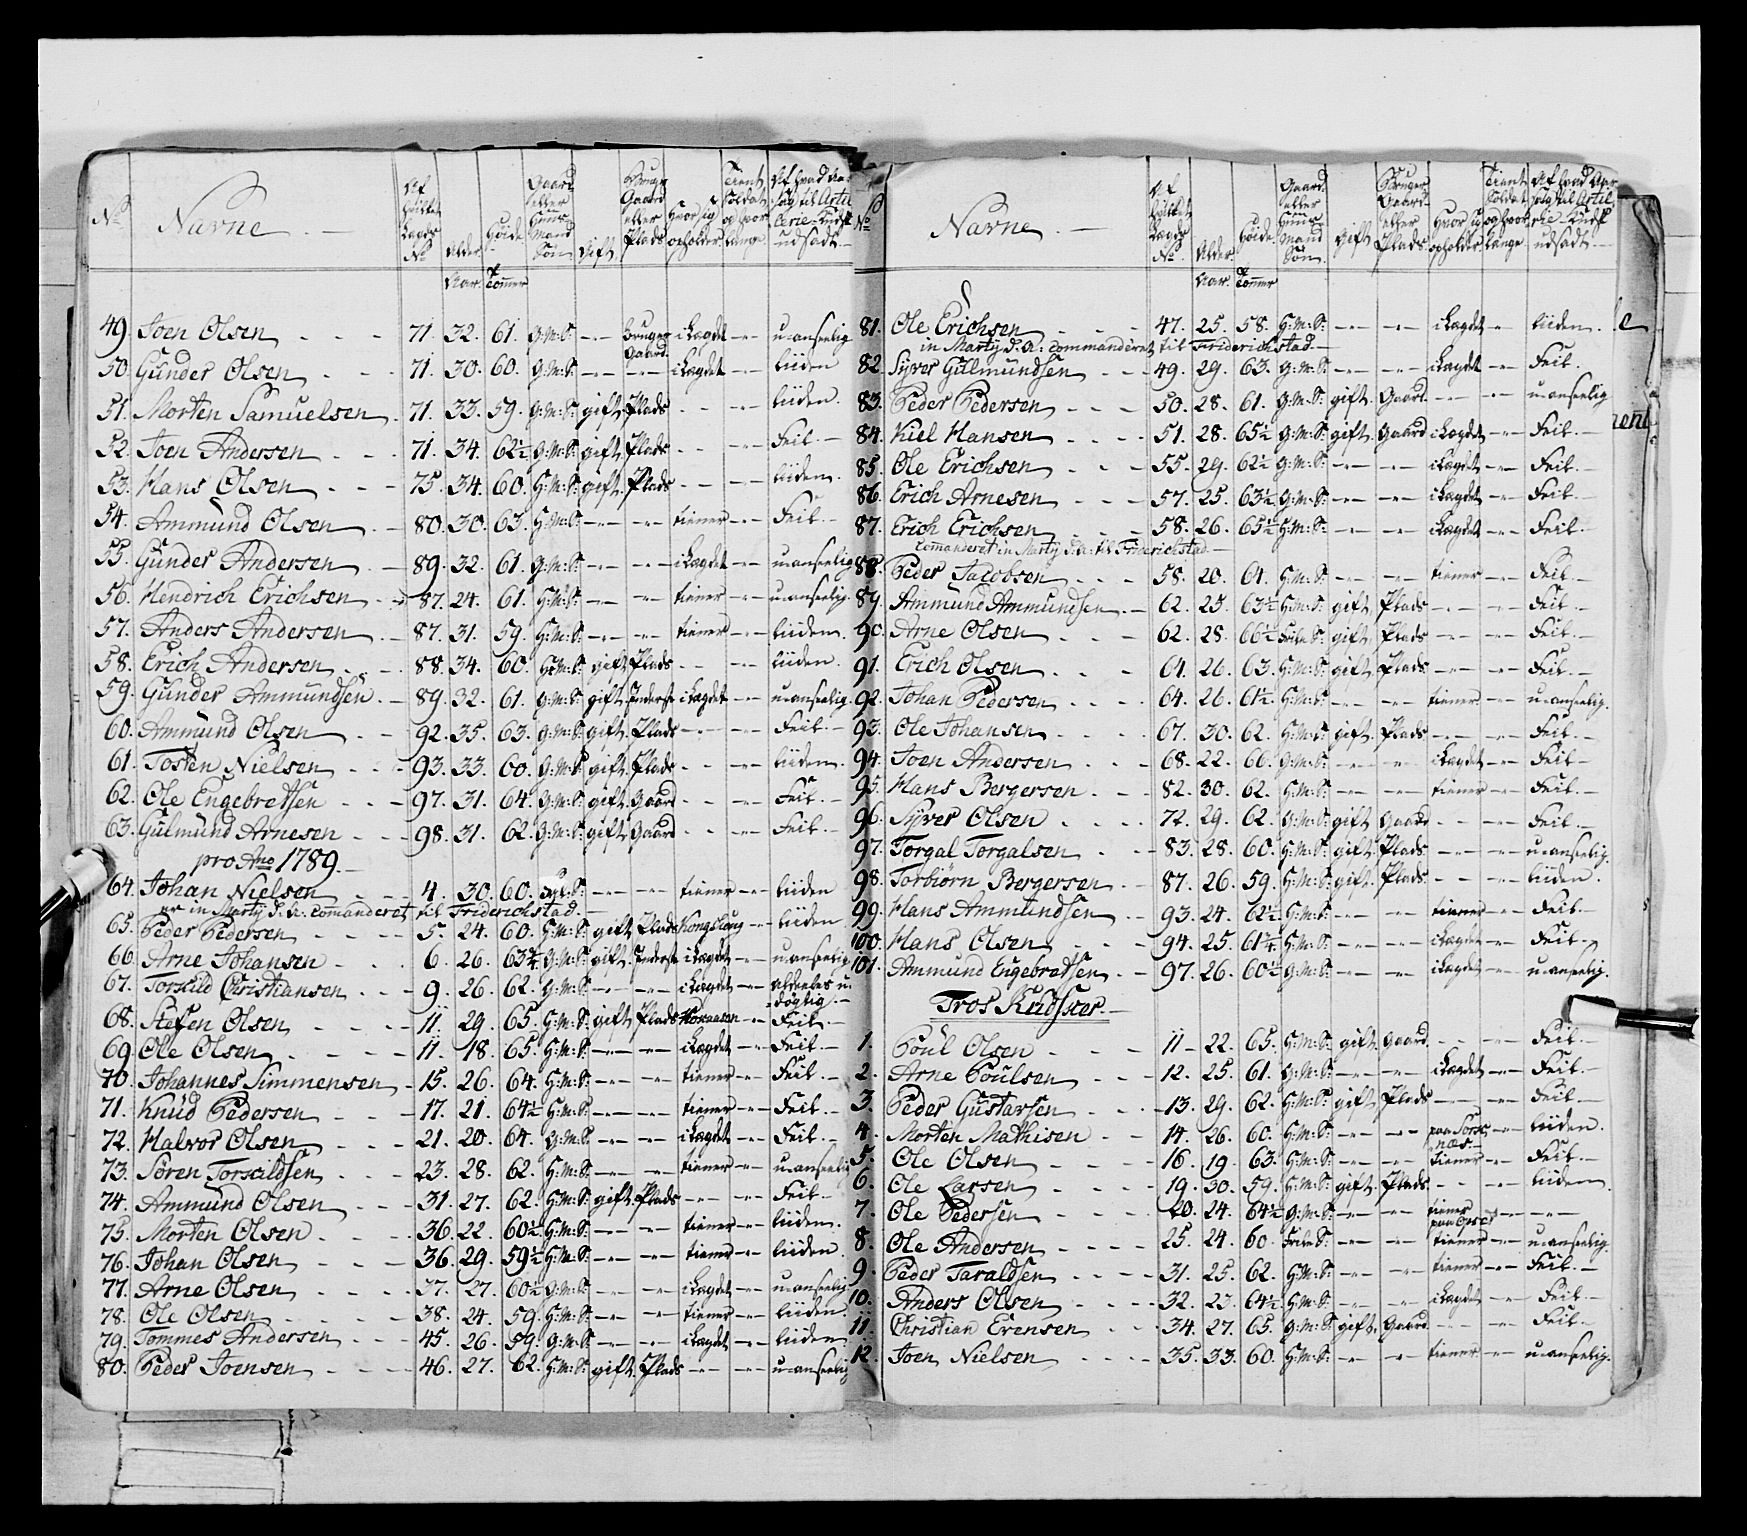 No Navne. Af hvilket Lægds No Alder. Høide Gaard eller Huus Mand Søn Gift. Bruger Gaard eller Plads Hvor sig opholder Tient Soldat og hvor længe. Af hvad Aarsag til Artillerie Kudsk udsadt
Aar. Tommer
49. Joen Olsen 71. 32. 61. G:M:S: Bruger Gaard. i Lægdet u-anseelig
50. Gunder Olsen 71. 30. 60. G:M:S: i Lægdet liiden
51. Morten Samuelsen 71. 33. 59. G:M:S: gift. Plads liiden.
52. Joen Andersen 71. 34. 62½ G:M:S: gift Plads Feil.
53. Hans Olsen 75. 34. 60. H:M:S: gift. Plads liiden.
54. Ammund Olsen 80. 30. 63. H:M:S: tiener Feil.
55. Gunder Andersen 89. 32. 61. G:M:S: i Lægdet u-anseelig
56. Hendrich Erichsen 87. 24. 61. H:M:S: tiener u-anseelig.
57. Anders Andersen 87. 31. 59. H:M:S: tiener liiden.
58. Erich Andersen 88. 34. 60. H:M:S: gift Plads liiden.
59. Gunder Ammundsen 89. 32. 61. G:M:S: gift Inderst i Lægdet u-anseelig.
60. Ammund Olsen 92. 35. 63. G:M:S: gift. Plads Feil.
61. Tosten Nielsen 93. 33. 60. G:M:S: gift Plads liiden.
62. Ole Engebretsen 97. 31. 64. G:M:S: gift Gaard Feil.
63. Gulmund Arnesen 98. 31. 62. G:M:S: gift Gaard Feil.
pro Ano 1789.
64. Johan Nielsen 4. 30. 60. tiener liiden
er in Marty d: A: Comanderet til Friderichstad.
65. Peder Pedersen 5. 24. 60. H:M:S: gift Plads liiden
66. Arne Johansen 6. 26. 63¾ G:M:S: gift. Inderst i Lægdet u-anseelig
67. Torskild Christiansen 9. 26. 62. G:M:S: i Lægdet aldeeles u-døgtig.
68. Stefen Olsen 11. 29. 65. H:M:S: gift Plads Feil.
69. Ole Olsen 11. 18. 65. H:M:S: i Lægdet Feil.
70. Johannes Simmensen 15. 26. 64. H:M:S: tiener Feil.
71. Knud Pedersen 17. 21. 64½ H:M:S: tiener Feil.
72. Halvor Olsen 21. 20. 64. G:M:S: i Lægdet Feil.
73. Søren Torskildsen 23. 28. 62. H:M:S: tiener u-anseelig
74. Ammund Olsen 31. 27. 62. H:M:S: gift. Plads Feil.
75. Morten Olsen 36. 22. 60½ H:M:S: tiener liiden.
76. Johan Olsen 36. 29. 59½ H:M:S: tiener liiden.
77. Arne Olsen 37. 27. 60½ G:M:S: i Lægdet u-anseelig
78. Ole Olsen 38. 24. 59. H:M:S: tiener liiden
79. Tommes Andersen 45. 26. 59. G:M:S: i Lægdet liiden
80. Peder Joensen 46. 27. 62. H:M:S: gift. Plads u-anseelig
No Navne. Af hvilket Lægds No Alder. Høide Gaard eller Huus Mand Søn. Gift Bruger Gaard eller Plads Hvor sig opholder Tient Soldat og hvor længe Af hvad Aarsag til Artillerie Kudsk udsadt
Aar. Tommer
81. Ole Erichsen 47. 25. 58. H:M:S: i Lægdet liiden.
in Marty d: A: Commanderet til Friderichstad.
82. Syver Gulmundsen 49. 29. 63. G:M:S: i Lægdet Feil.
83. Peder Pedersen 50. 28. 61. G:M:S: gift. Gaard. u-anseelig
84. Kiel Hansen 51. 28. 65½ G:M:S: gift. Gaard i Lægdet Feil.
85. Ole Erichsen 55. 29. 62½ G:M:S: i Lægdet Feil.
86. Erich Arnesen 57. 25. 63½ G:M:S: i Lægdet Feil.
87. Erich Erichsen 58. 26. 65½ H:M:S: i Lægdet Feil.
Comanderet in Marty d: A: til Friderichstad.
88. Peder Jacobsen 58. 20. 64. H:M:S: tiener Feil.
89. Ammund Ammundsen 62. 25. 63½ H:M:S: gift Plads Feil.
90. Arne Olsen 62. 28. 66½ gift. Plads Feil.
91. Erich Olsen 64. 26. 63. H:M:S: gift Plads Feil.
92. Johan Pedersen 64. 26. 61½ H:M:S: tiener u-anseelig.
93. Ole Johansen 67. 30. 62. H:M:S: gift. Plads Feil.
94. Joen Andersen 68. 22. 66. G:M:S: i Lægdet Feil
95. Hans Bergersen 82. 30. 62. H:M:S: tiener Feil.
96. Syver Olsen 72. 29. 62. G:M:S: gift Gaard Feil.
97. Torgal Torgalsen 83. 28. 60. H:M:S: gift. Plads u-anseelig
98. Torbiørn Bergersen 87. 26. 59. H:M:S: gift. Plads liiden.
99. Hans Ammundsen 93. 24. 62½ H:M:S: tiener Feil.
100. Hans Olsen 94. 25. 61¾ H:M:S: i Lægdet Feil.
101. Ammund Engebretsen 97. 26. 60½ G:M:S: i Lægdet u-anseelig.
Tros Kudsker.
1. Poul Olsen 11 22. 65. H:M:S: gift. Gaard Feil.
2. Arne Poulsen 12. 25. 61. G:M:S: i Lægdet Feil.
3. Peder Gustavsen 13. 29. 62. H:M:S: gift Plads Feil.
4. Morten Mathisen 14. 26. 60. H:M:S: liiden.
5. Ole Olsen 16. 19. 63. H:M:S: tiener Feil.
6. Ole Larsen 19. 30. 59. H:M:S: gift. Plads liiden
7. Ole Pedersen 20. 24. 64½ G:M:S: tiener
8. Ole Andersen 25. 24. 60. tiener u-anseelig.
9. Peder Taraldsen 31. 25. 62. H:M:S: tiener Feil.
10. Anders Olsen 32. 23. 64½ H:M:S: i Lægdet Feil.
11. Christian Evensen 34. 27. 65. G:M:S: gift. Gaard Feil.
12. Joen Nielsen 35. 33. 60. H:M:S: tiener u-anseelig.